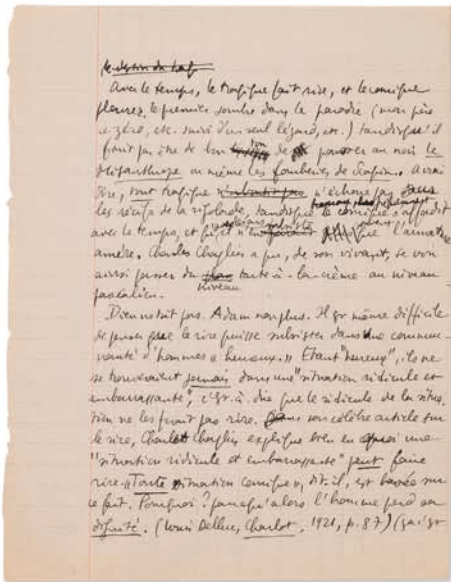 le destin du trag
Avec le temps, le tragique fait rire, et le comique
pleurer. le premier sombre dans la parodie (mon père
ce zéro, etc. suivi d'un seul lézard, etc.) tandis qu'il
finit par être de bon ton de pousser au noir le
Misanthrope ou même les fourberies de Scapin. A vrai
dire, tout tragique n'échoue pas dans
les récifs de la rigolade, tandis que le comique s'affadit
avec le temps, et qu'il n'en que l'armature
amère. Charles Chaplin a pu, de son vivant, se voir
ainsi passer du tarte-à-la-crème au niveau
niveau
pascalien.
Dieu ne rit pas. Adam non plus. Il est même difficile
de penser que le rire puisse subsister dans une commu-
nauté d'hommes « heureux. » Etant "heureux", ils ne
se trouveraient jamais dans une "situation ridicule et
embarrassante", c'est-à-dire que le ridicule de la situa-
tion ne les ferait pas rire. Dans son célèbre article sur
le rire, Charles Chaplin explique bien en quoi une
"situation ridicule et embarrassante" peut faire
rire. « Toute situation comique », dit-il, est basée sur
ce fait. Pourquoi ? parce qu'alors l'homme perd sa
dignité. (Louis Delluc, Charlot, 1921, p. 87) (ça, c'est